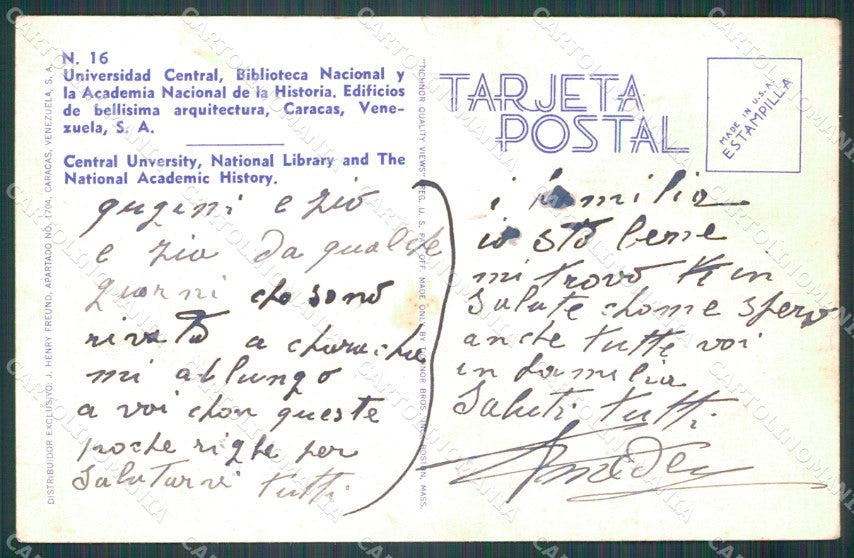 N. 16
Universidad Central, Biblioteca Nacional y
la Academia Nacional de la Historia. Edificios
de bellisima arquitectura, Caracas, Vene-
zuela, S. A.
Central Unversity, National Library and The
National Academic History.
qugini e zio
e zia da qualche
giorni che sono
rivato a charache
mi allungo
a voi chon queste
poche righe per
salutarvi tutti
DISTRIBUIDOR EXCLUSIVO: J. HENRY FREUND, APARTADO NO. 1704, CARACAS, VENEZUELA, S. A.
"TICHNOR QUALITY VIEWS" REG. U. S. PAT. OFF. MADE ONLY BY TICHNOR BROS. INC., BOSTON, MASS.
TARJETA
POSTAL
MADE IN U.S.A.
ESTAMPILLA
i familia
io sto bene
mi trovo in
salute chome spero
anche tutti voi
in familia
Saluti tutti
CARTOLINOMANIA